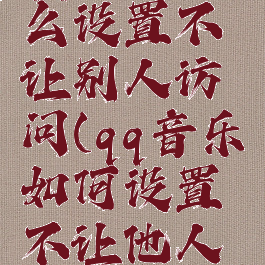 么设置不
让别人访
问(qq音乐
如何设置
不让他人